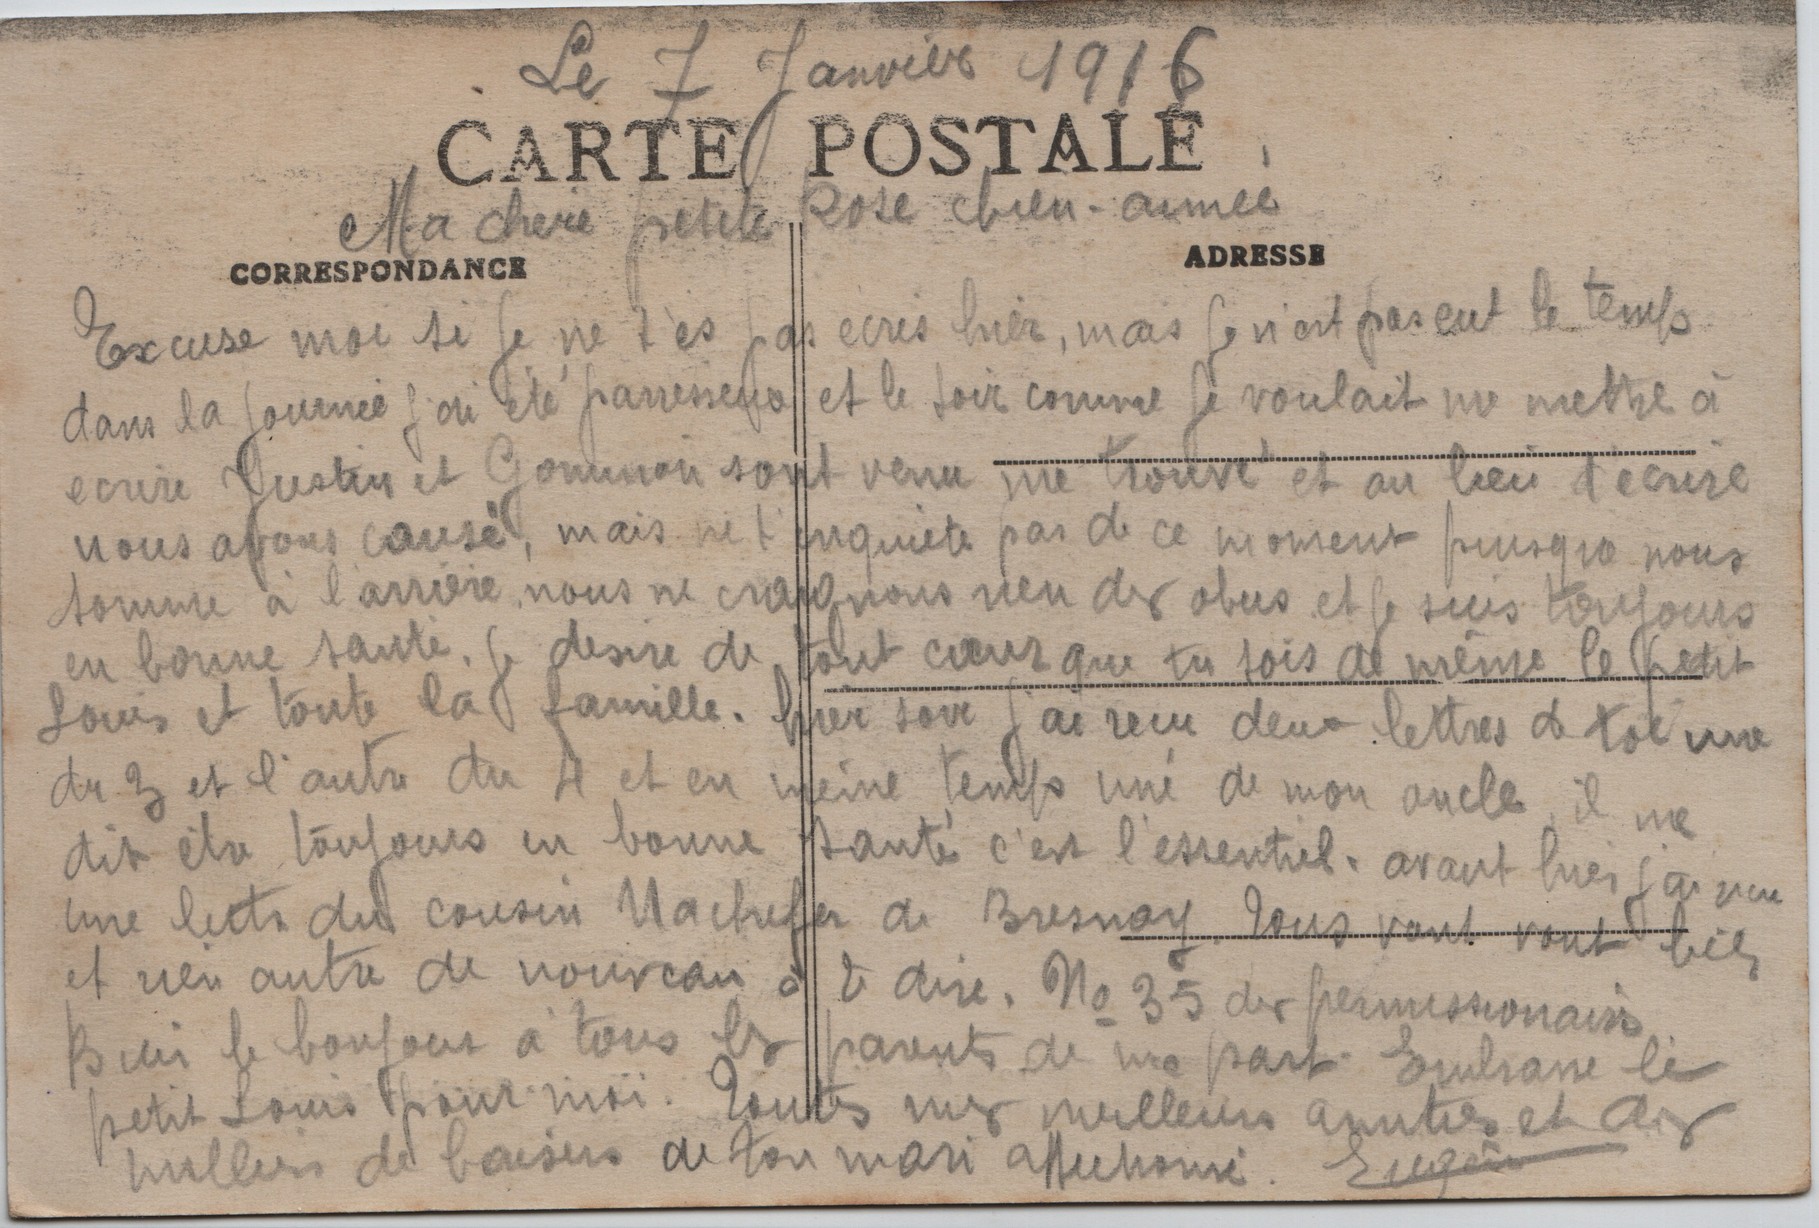 Le 7 Janvier 1916
CARTE POSTALE
Ma chere petite Rose bien-aimée
CORRESPONDANCE
ADRESSE
Excuse moi si je ne t'es pas ecris hier, mais je n'ort pas eut le temps
dans la journée j'ai été parresseux et le soir comme je voulait me mettre à
ecrire Justin et sont venu me trouvé et au lieu d'ecrire
nous avons causé, mais ne t'inquiete pas de ce moment puisque nous
somme à l'arrière, nous ne craignons rien des obus et je suis toujours
en bonne santé. je desire de tout cœur que tu sois de même le petit
Louis et toute la famille. hier soir j'ai recu deux lettres de toi une
du 3 et l'autre du 4 et en même temps une de mon oncle, il me
dit être toujours en bonne santé c'est l'essentiel. avant hier j'ai recu
une lettre du cousin Machefer de Bresnay. Tous vont vont bien
et rien autre de nouveau à te dire. No 35 des permissionairs
Bien le bonjour à tous les parents de ma part. Embrasse le
petit Louis pour moi. Toutes mes meilleurs amities et des
milliers de baisers de ton mari affectionné. Eugène